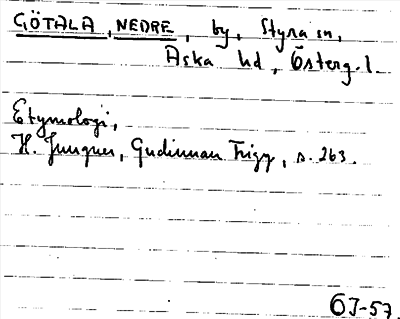 GÖTALA, NEDRE, by, Styra sn,
Aska hd, Österg. l.
Etymologi,
H. Jungner, Gudinnan Frigg, s. 263.
ÖJ-57.